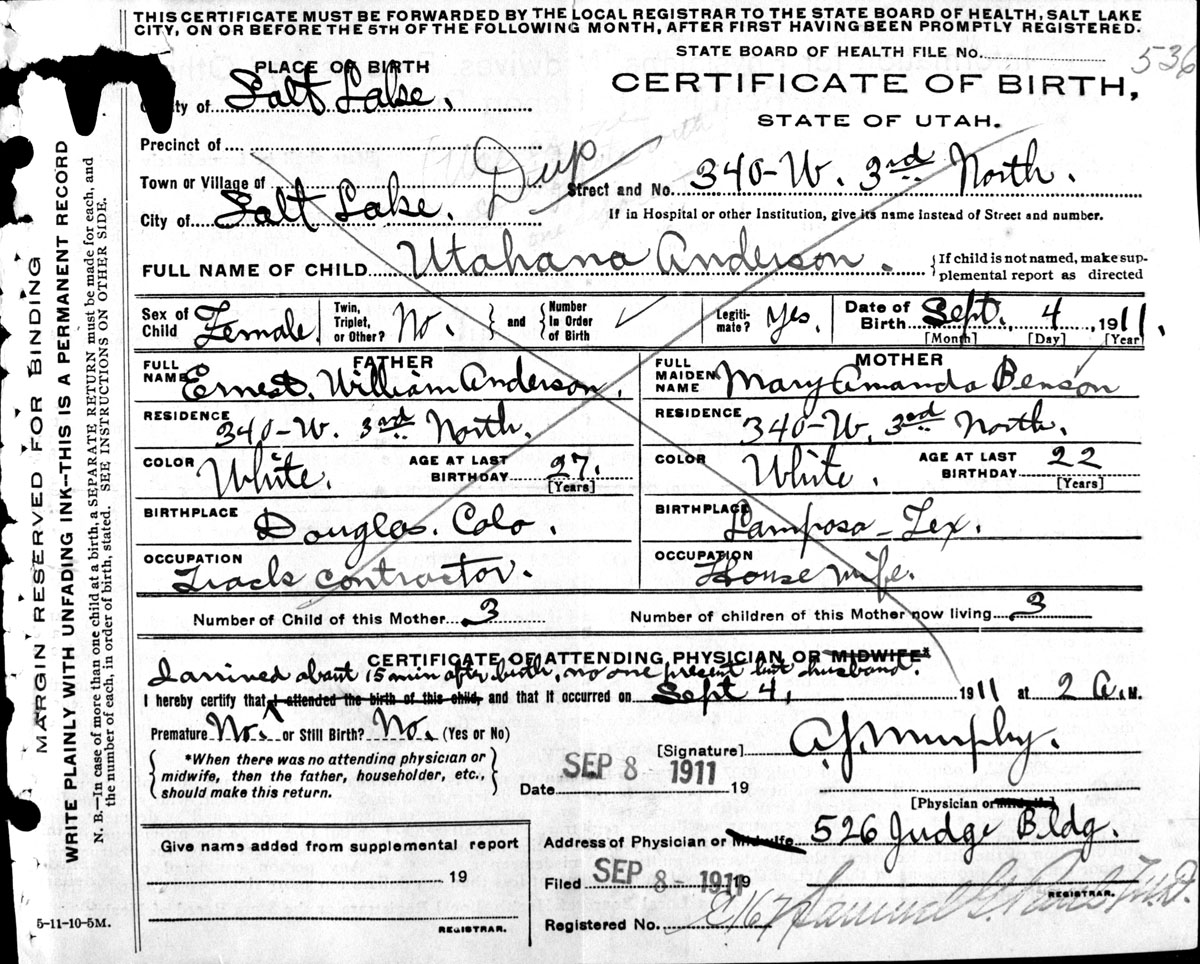 THIS CERTIFICATE MUST BE FORWARDED BY THE LOCAL REGISTRAR TO THE STATE BOARD OF HEALTH, SALT LAKE
CITY, ON OR BEFORE THE 5TH OF THE FOLLOWING MONTH, AFTER FIRST HAVING BEEN PROMPTLY REGISTERED.
STATE BOARD OF HEALTH FILE No. 536
PLACE OF BIRTH
CERTIFICATE OF BIRTH,
of Salt Lake.
STATE OF UTAH.
Precinct of
Dup
Town or Village of
Street and No. 340-W. 3rd North.
City of Salt Lake.
If in Hospital or other Institution, give its name instead of Street and number.
FULL NAME OF CHILD Utahana Anderson.
{If child is not named, make sup-
plemental report as directed
Sex of Child Female. Twin, Triplet, or Other? No. and {Number In Order of Birth ✓ Legiti- mate? Yes. Date of Birth Sept. 4 1911.
[Month] [Day] [Year]
FATHER MOTHER
FULL NAME Ernest. William Anderson. FULL MAIDEN NAME Mary Amanda Benson
RESIDENCE 340-W. 3rd North. RESIDENCE 340-W. 3rd North.
COLOR White. AGE AT LAST BIRTHDAY 27. [Years] COLOR White. AGE AT LAST BIRTHDAY 22 [Years]
BIRTHPLACE Douglas. Colo. BIRTHPLACE Lamposa - Tex.
OCCUPATION Track contractor. OCCUPATION House wife.
Number of Child of this Mother 3 Number of children of this Mother now living 3
CERTIFICATE OF ATTENDING PHYSICIAN OR MIDWIFE*
I arrived about 15 min after birth, no one present but husband.
I hereby certify that I attended the birth of this child, and that it occurred on Sept 4, 1911 at 2 A.M.
Premature No. or Still Birth? No. (Yes or No)
[Signature] A.J. Murphy.
{*When there was no attending physician or
midwife, then the father, householder, etc.,
should make this return.}
Date SEP 8 - 1911 19
[Physician or Midwife]
Address of Physician or Midwife 526 Judge Bldg.
Give name added from supplemental report
19
Filed SEP 8 - 1911 19
REGISTRAR.
Registered No.
REGISTRAR.
5-11-10-5M.
MARGIN RESERVED FOR BINDING
WRITE PLAINLY WITH UNFADING INK--THIS IS A PERMANENT RECORD
N. B.—In case of more than one child at a birth, a SEPARATE RETURN must be made for each, and
the number of each, in order of birth, stated. SEE INSTRUCTIONS ON OTHER SIDE.